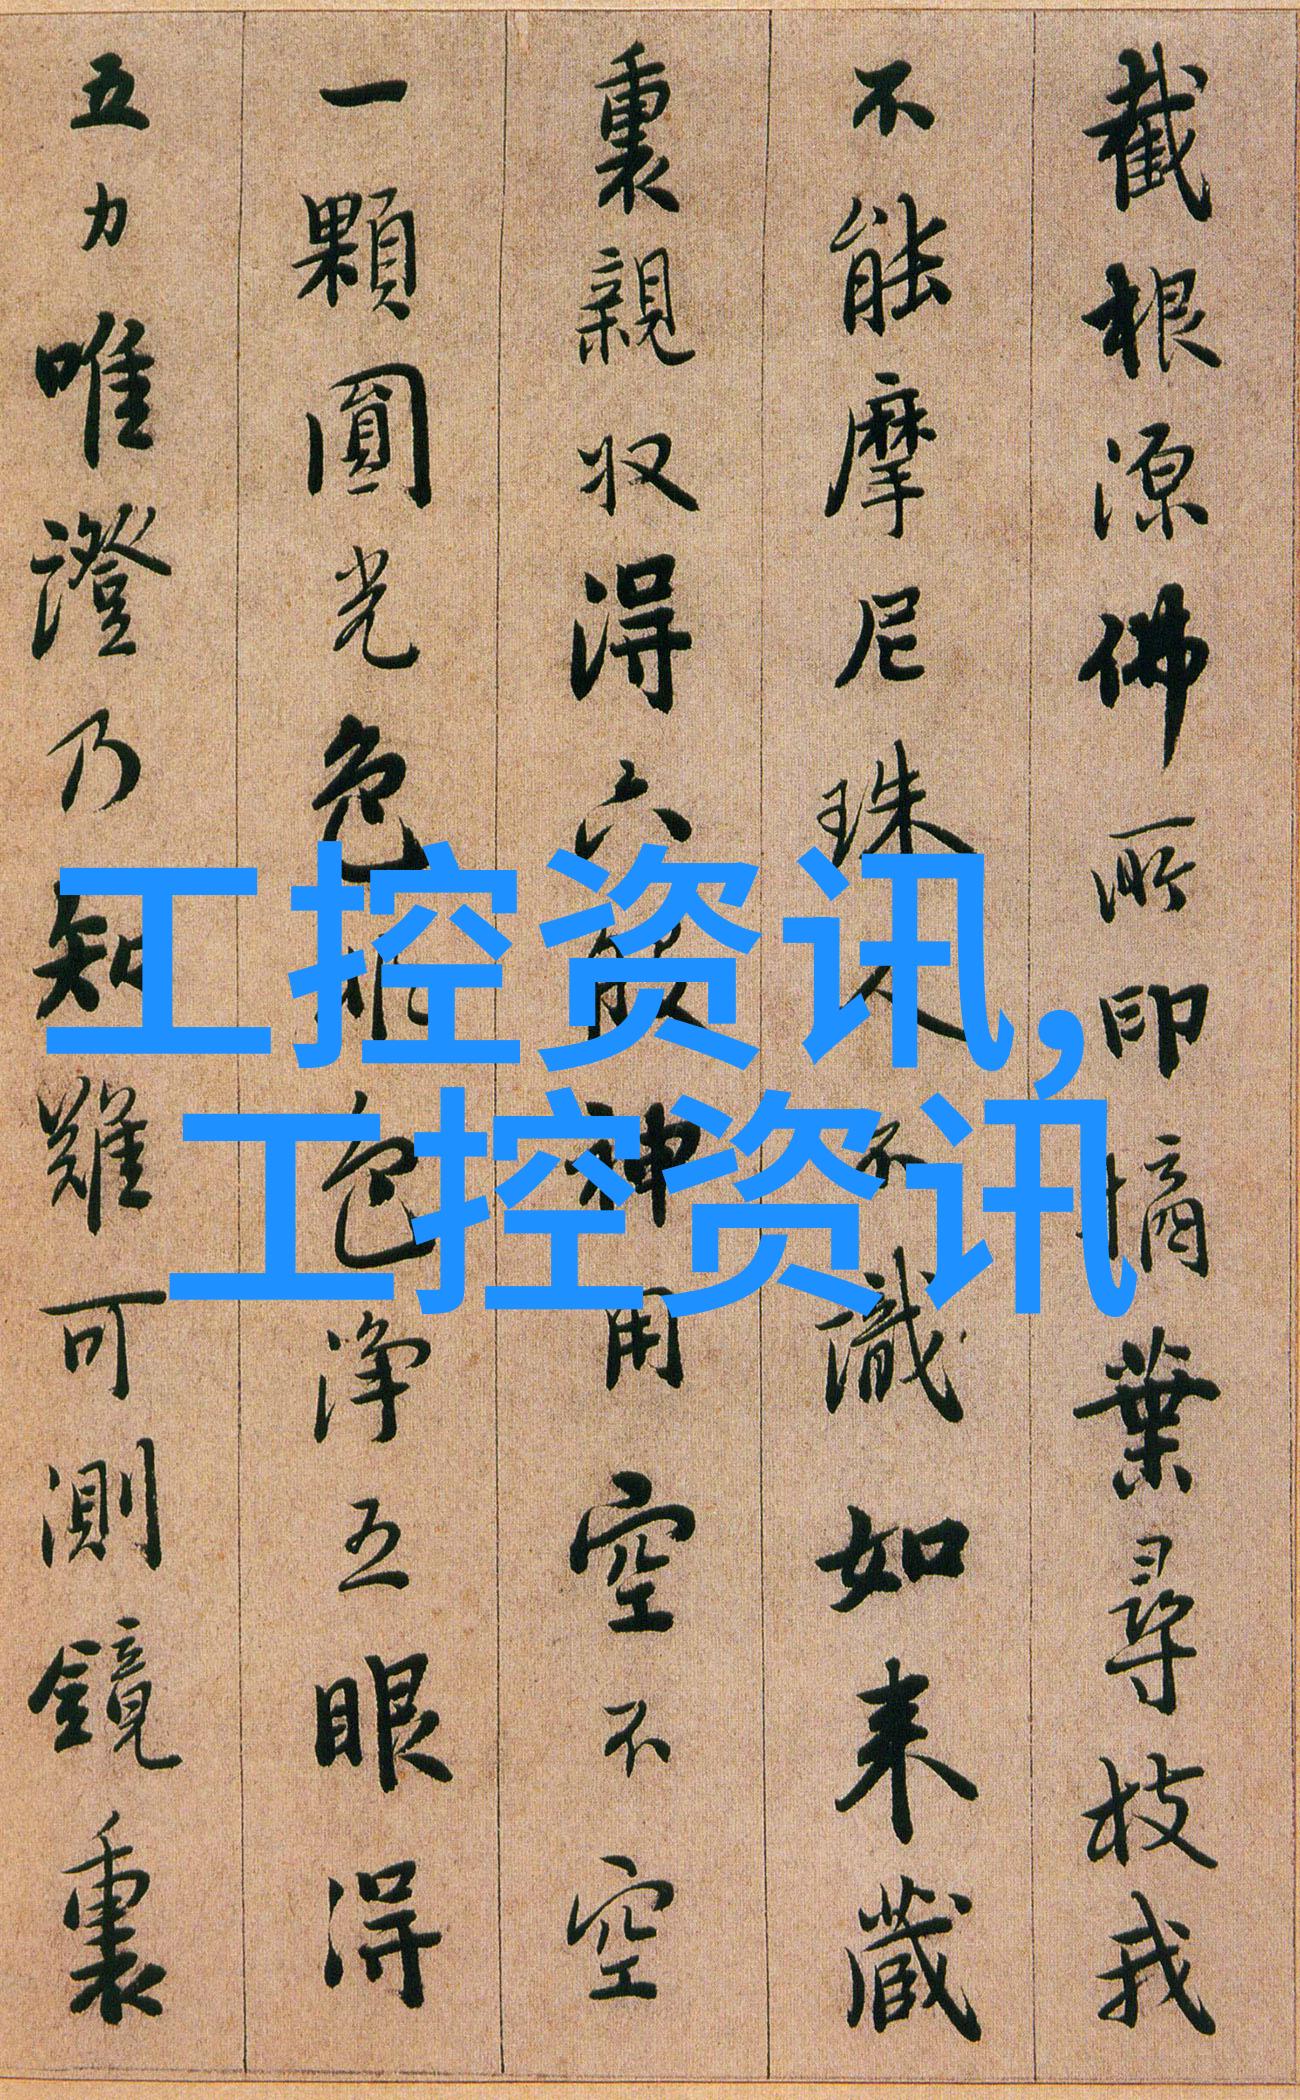 截根源佛所印摘葉尋枝我
不能摩尼珠人不識如来藏
裏親収得六般神用空不空
一顆圓光色非色淨五眼得
五力唯證乃知難可測鏡裏
工控资讯，
工控资讯